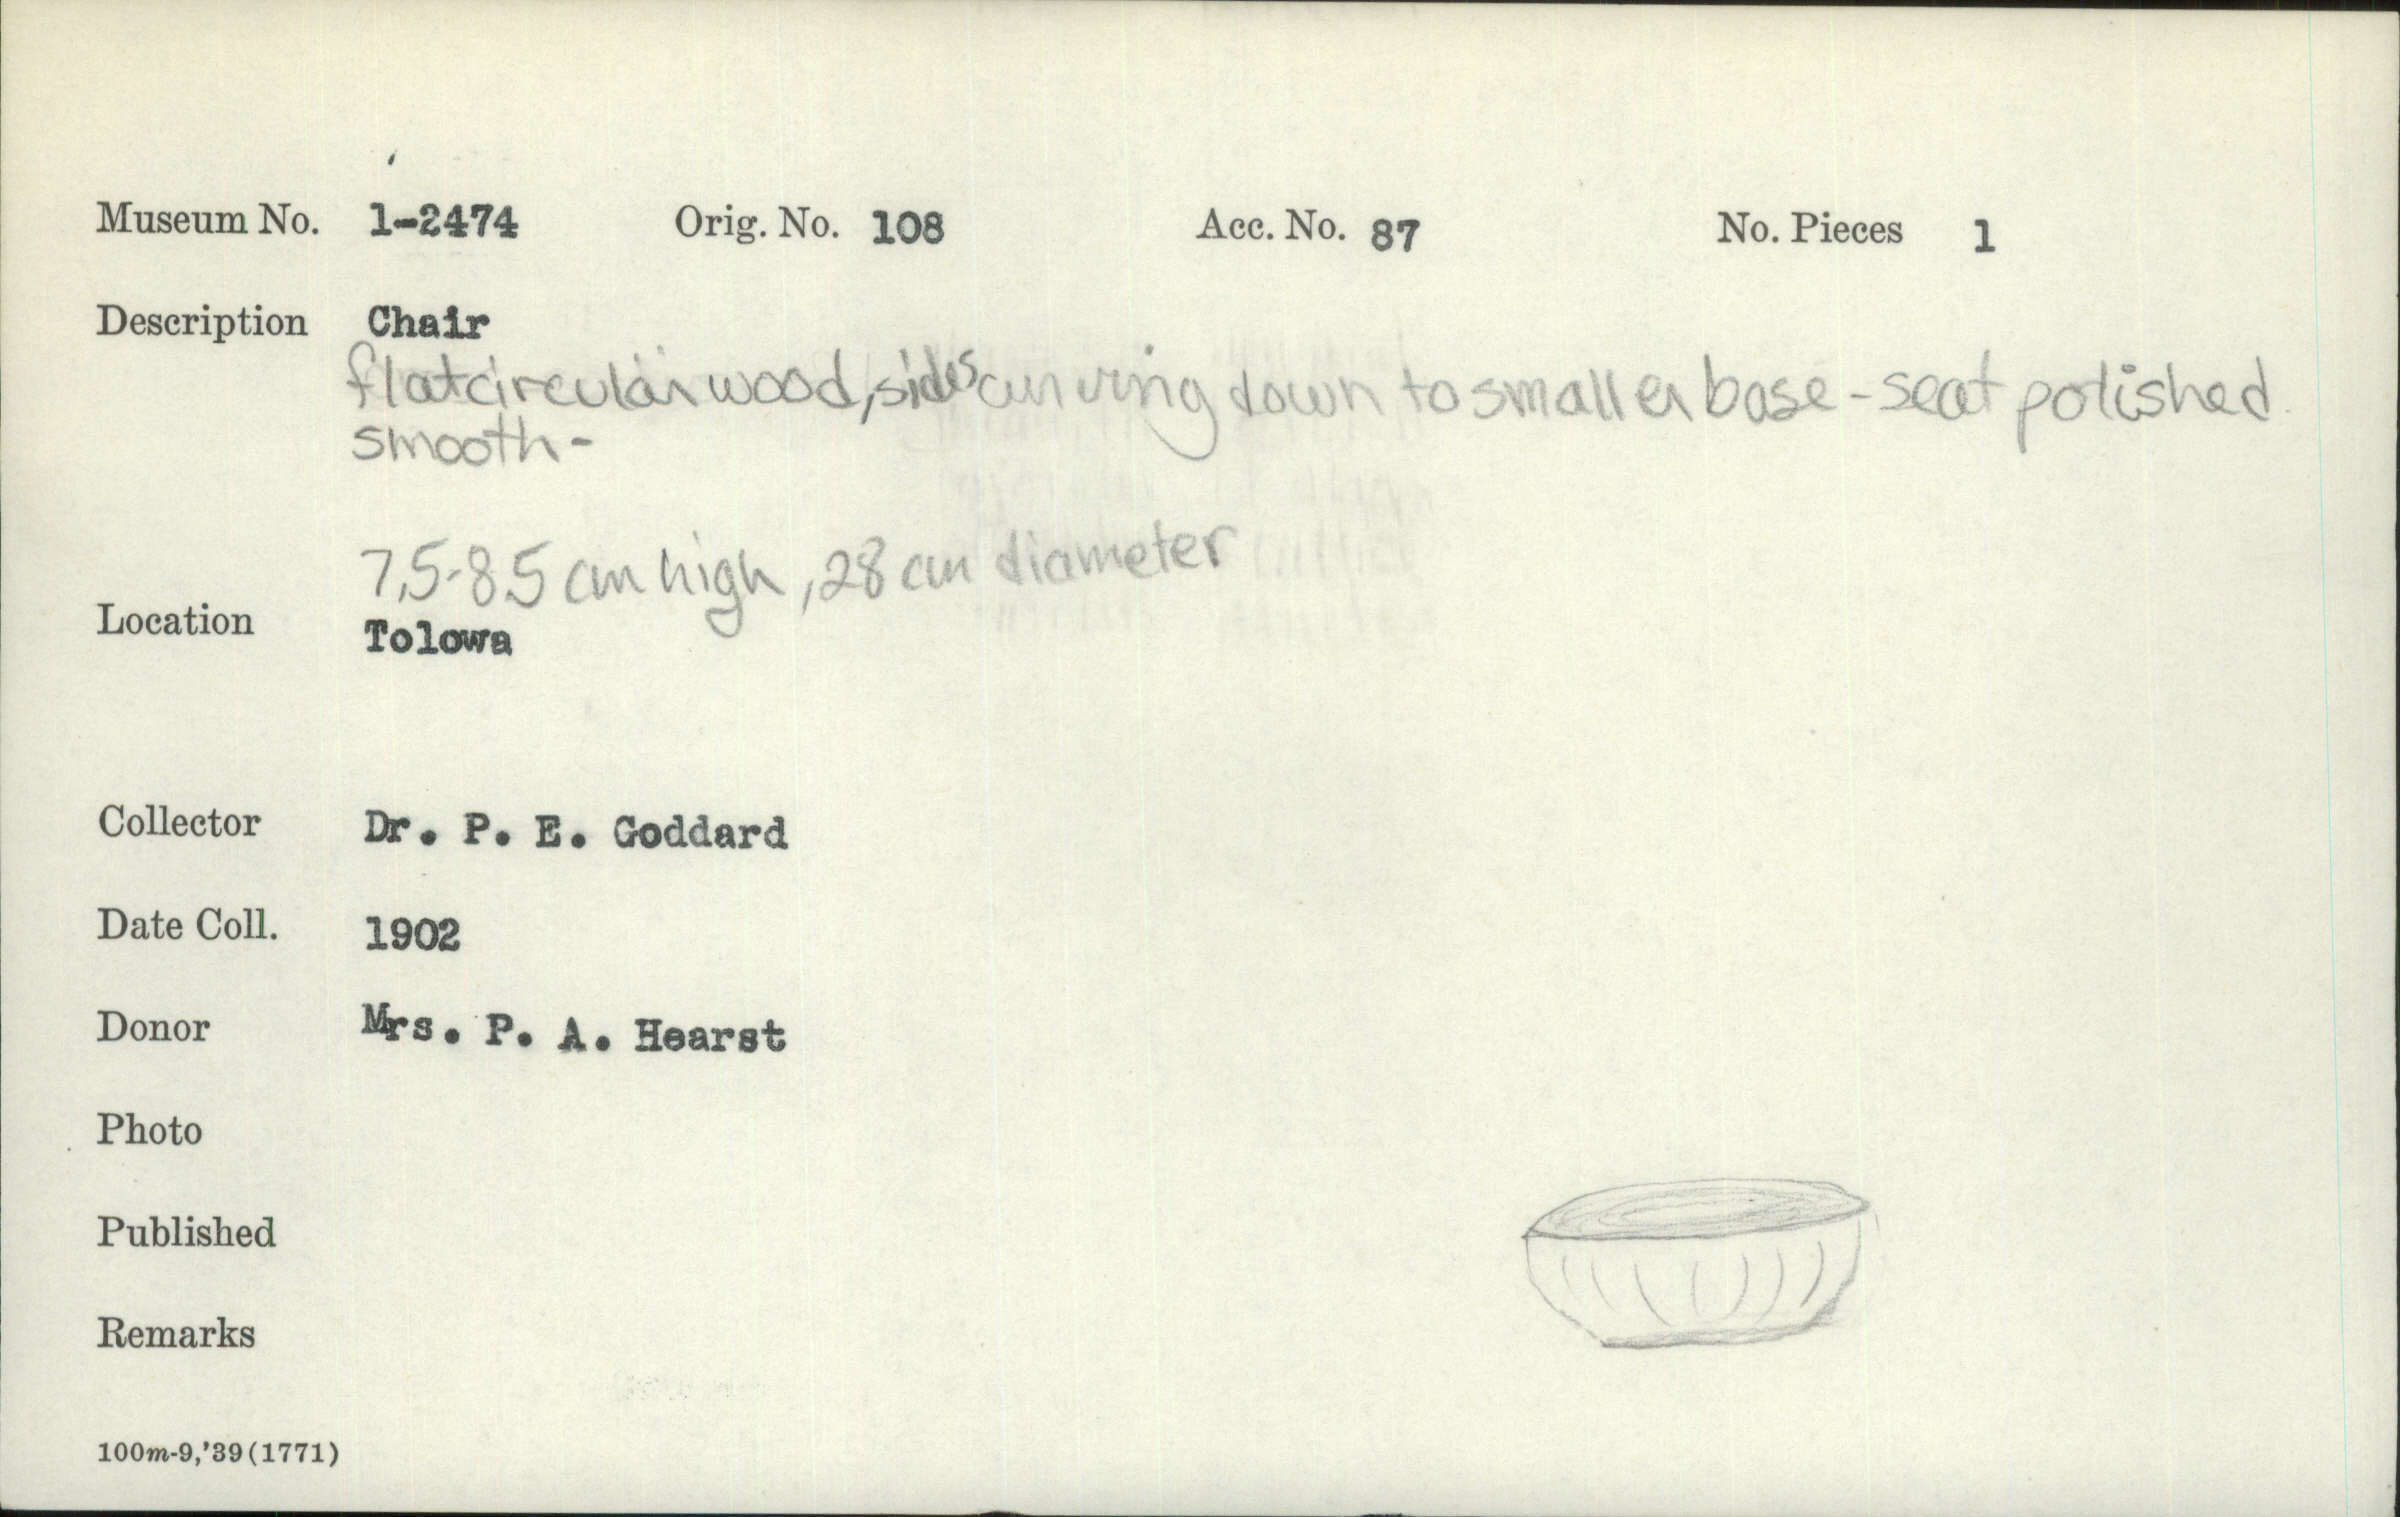 Museum No. 1-2474 Orig. No. 108 Acc. No. 87 No. Pieces 1
Description Chair
flat circular wood, sides curving down to smaller base - seat polished
smooth -
7.5-8.5 cm high, 28 cm diameter
Location Tolowa
Collector Dr. P. E. Goddard
Date Coll. 1902
Donor Mrs. P. A. Hearst
Photo
Published
Remarks
100m-9,'39(1771)